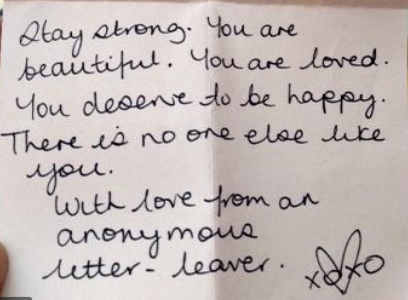 Stay strong. You are
beautiful. You are loved.
You deserve to be happy.
There is no one else like
you.
With love from an
anonymous
letter-leaver.
xoxo